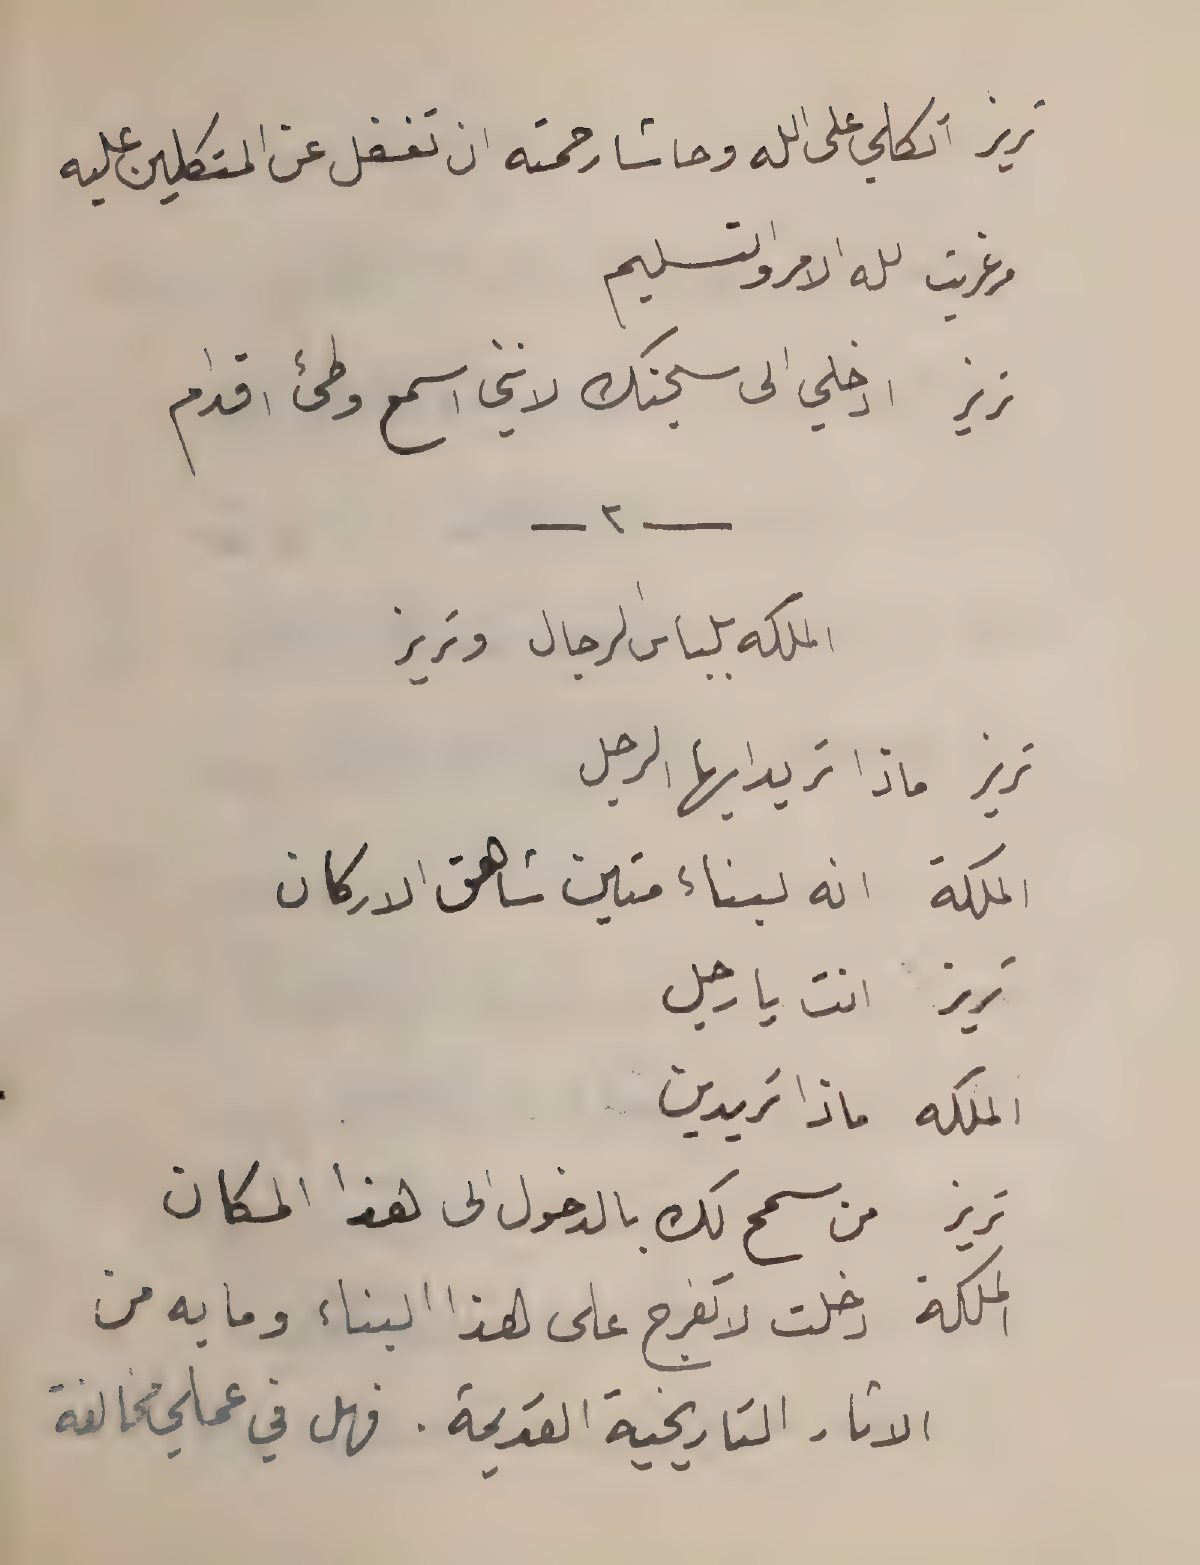 تريز اتكلي على الله وحاشا رحمته ان تغفل عن المتكلين عليه
مرغريت لله الامر والتسليم
تريز ادخلي الى سجنك لانني اسمع وطئ اقدام
— ٢ —
الملكه بلباس الرجال وتريز
تريز ماذا تريد ايها الرجل
الملكة انه لبناء متين شاهق الاركان
تريز انت يا رجل
الملكه ماذا تريدين
تريز من سمح لك بالدخول الى هذا المكان
الملكة دخلت لاتفرج على هذا البناء وما به من
الاثار التاريخية القديمة . فهل في عملي مخالفة